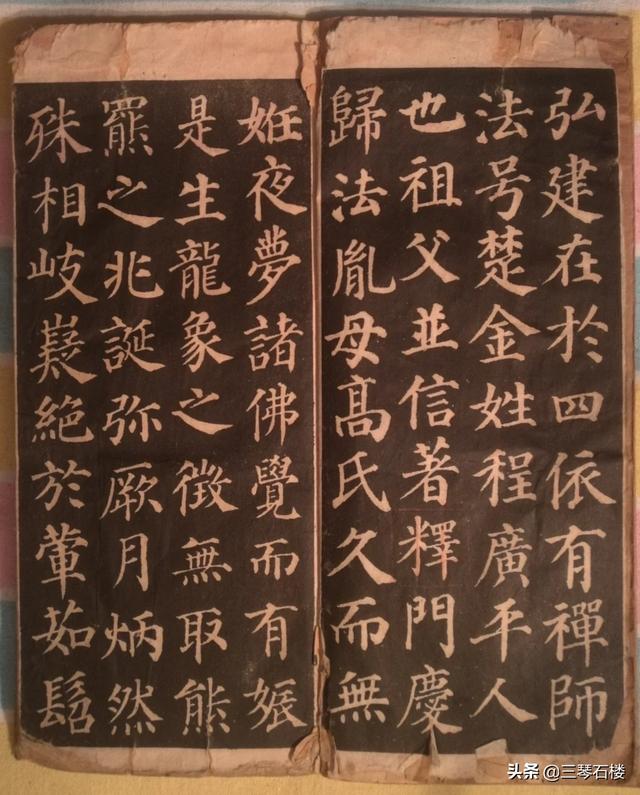 弘建在於四依有禪師
法号楚金姓程廣平人
也祖父並信著釋門慶
歸法胤母髙氏久而無
姙夜夢諸佛覺而有娠
是生龍象之徵無取熊
羆之兆誕弥厥月炳然
殊相岐嶷絕於葷茹髫
头条 @三琴石楼